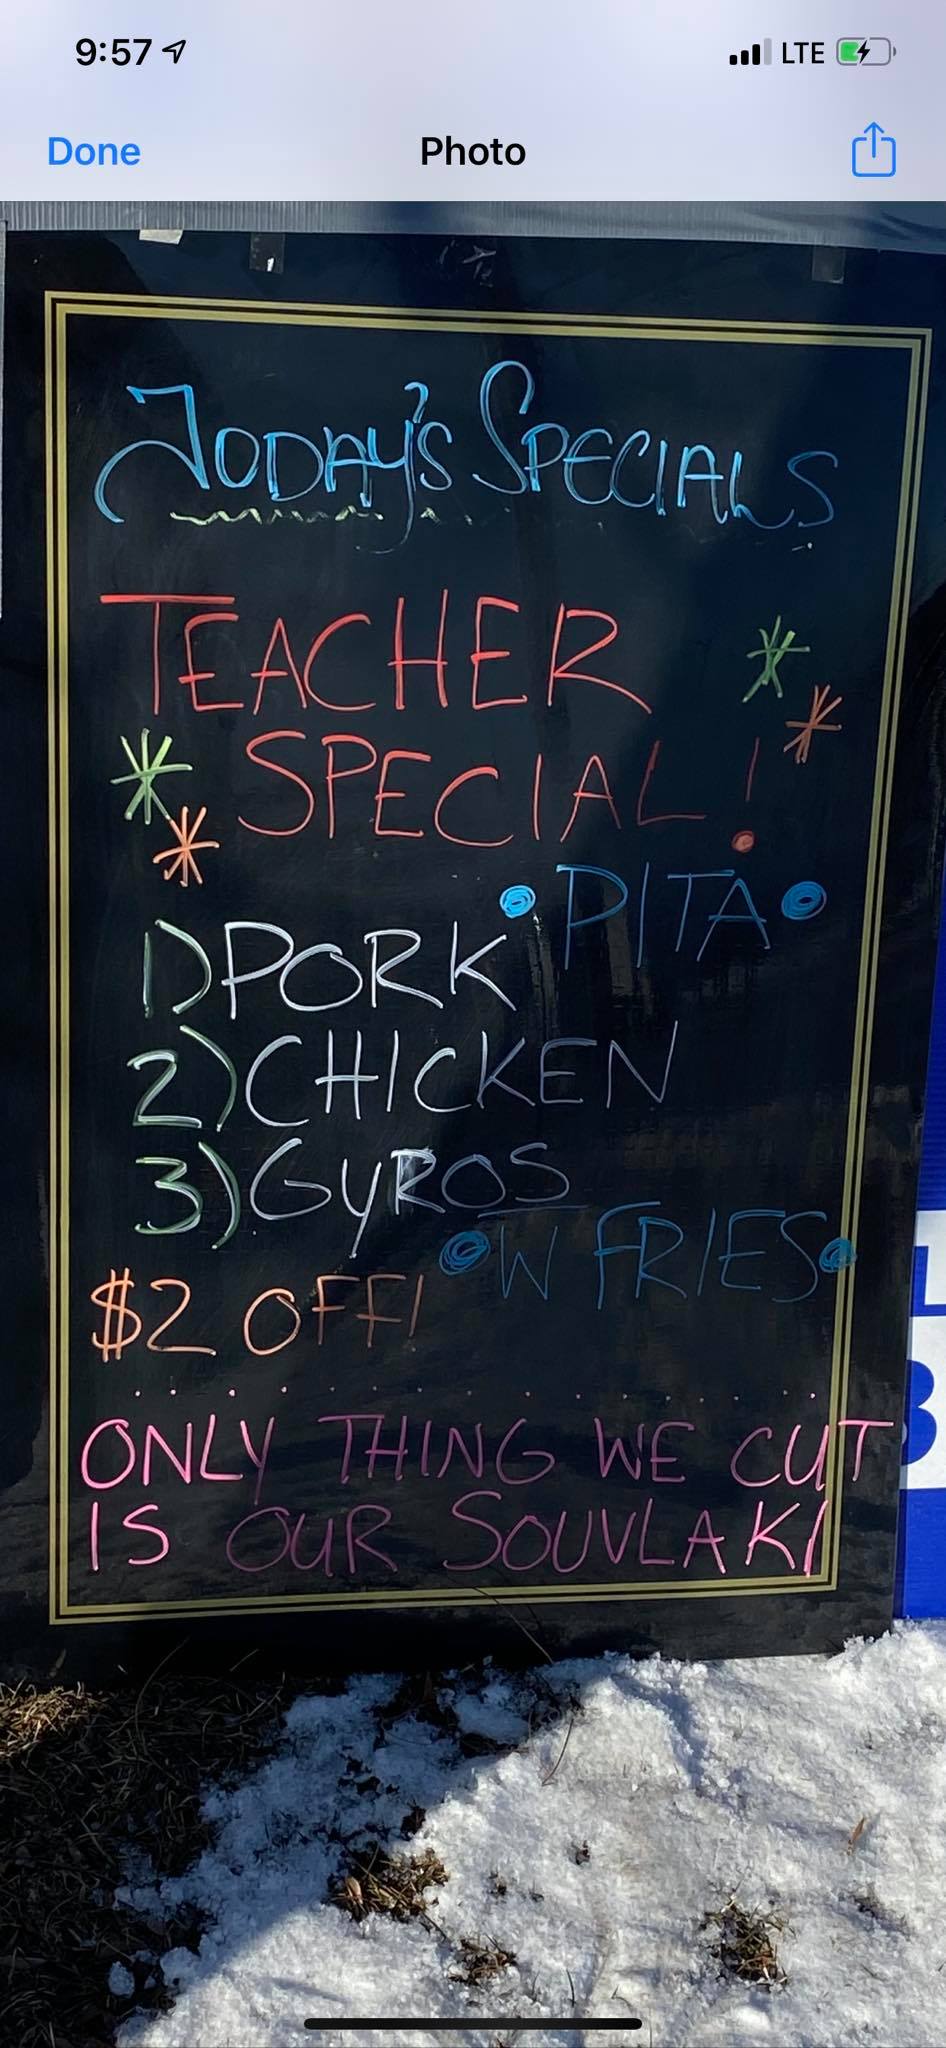 9:57
LTE
Done
Photo
TODAY'S SPECIALS
TEACHER
SPECIAL!
PITA
1) PORK
2) CHICKEN
3) GYROS
W FRIES
$2 OFF!
ONLY THING WE CUT
IS OUR SOUVLAKI